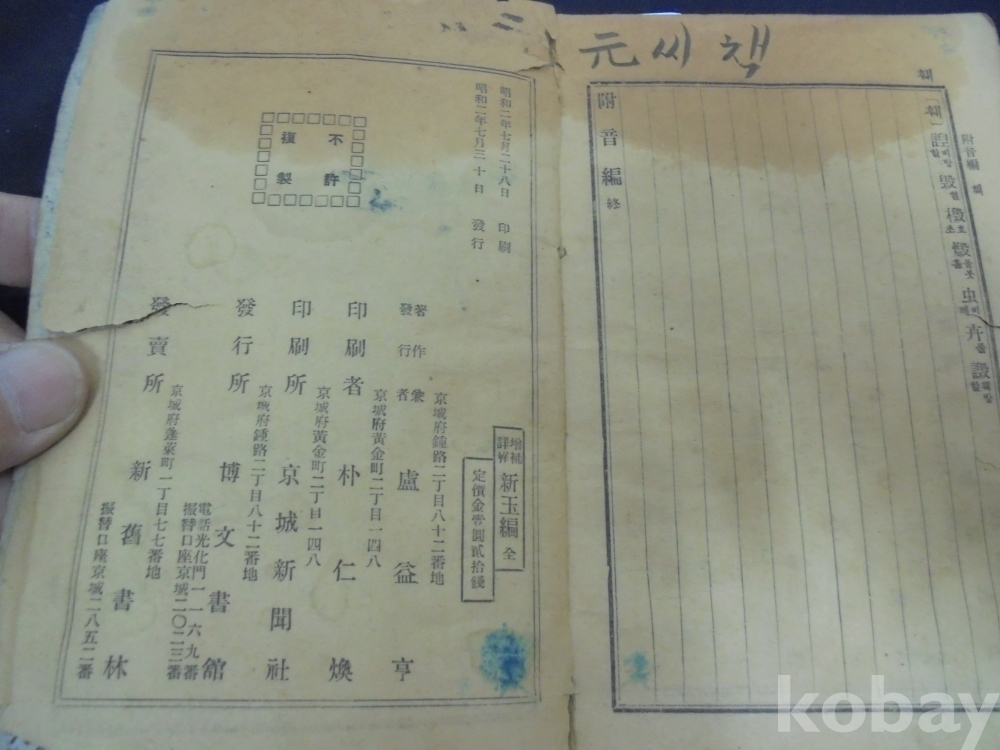 元씨책
훼
附音編 훼
훼
虫
卉
附音編 終
增補
詳解
新玉編 全
定價金壹圓貳拾錢
昭和二年七月二十八日 印刷
昭和二年七月三十日 發行
不許
複製
京城府鍾路二丁目八十二番地
著作兼
發行者
盧益亨
京城府黃金町二丁目一四八
印刷者 朴仁煥
京城府黃金町二丁目一四八
印刷所 京城新聞社
京城府鍾路二丁目八十二番地
發行所 博文書館
電話光化門一一六九番
振替口座京城二〇二三番
京城府蓬萊町一丁目七七番地
發賣所 新舊書林
振替口座京城二八五二番
kobay